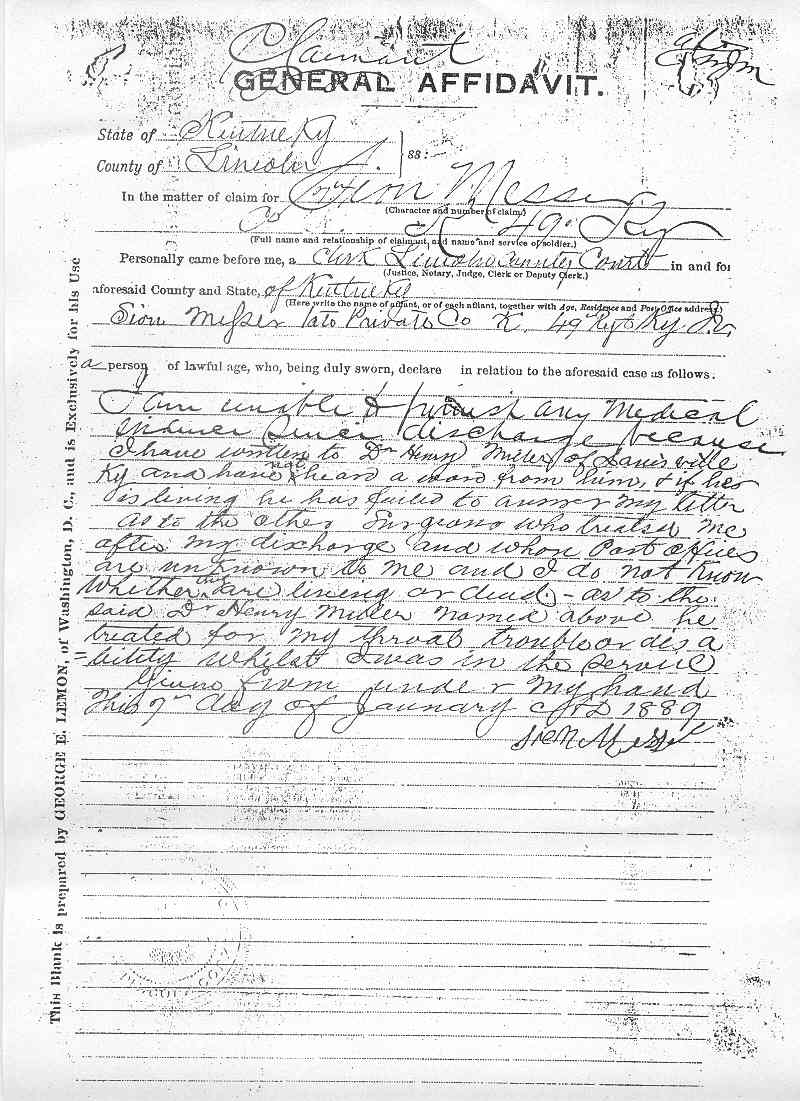 Claimant
GENERAL AFFIDAVIT.
State of Kentucky
County of Lincoln } SS:
In the matter of claim for Sion Messer
(Character and number of claim)
Co K 49" Ky
(Full name and relationship of claimant, and name and service of soldier.)
Personally came before me, a Clerk Lincoln County Court in and for
(Justice, Notary, Judge, Clerk or Deputy Clerk.)
aforesaid County and State, of Kentucky
(Here write the name of affiant, or of each affiant, together with Age, Residence and Post Office address.)
Sion Messer late Private Co K. 49" Regt Ky
a person of lawful age, who, being duly sworn, declare in relation to the aforesaid case as follows:
I am unable to furnish any Medical
evidence since discharge because
I have written to Dr Henry Miller of Louisville
Ky and have not heard a word from him, & if he
is living he has failed to answer my letter
as to the other Surgeons who treated me
after my discharge and whose Post offices
are unknown to me and I do not know
whether they are living or dead. - as to the
said Dr Henry Miller named above he
treated for my throat trouble or disa
=bility whilst I was in the service
Given from under my hand
This 7" day of January AD 1889
Sion Messer
This Blank is prepared by GEORGE E. LEMON, of Washington, D. C., and is Exclusively for his Use